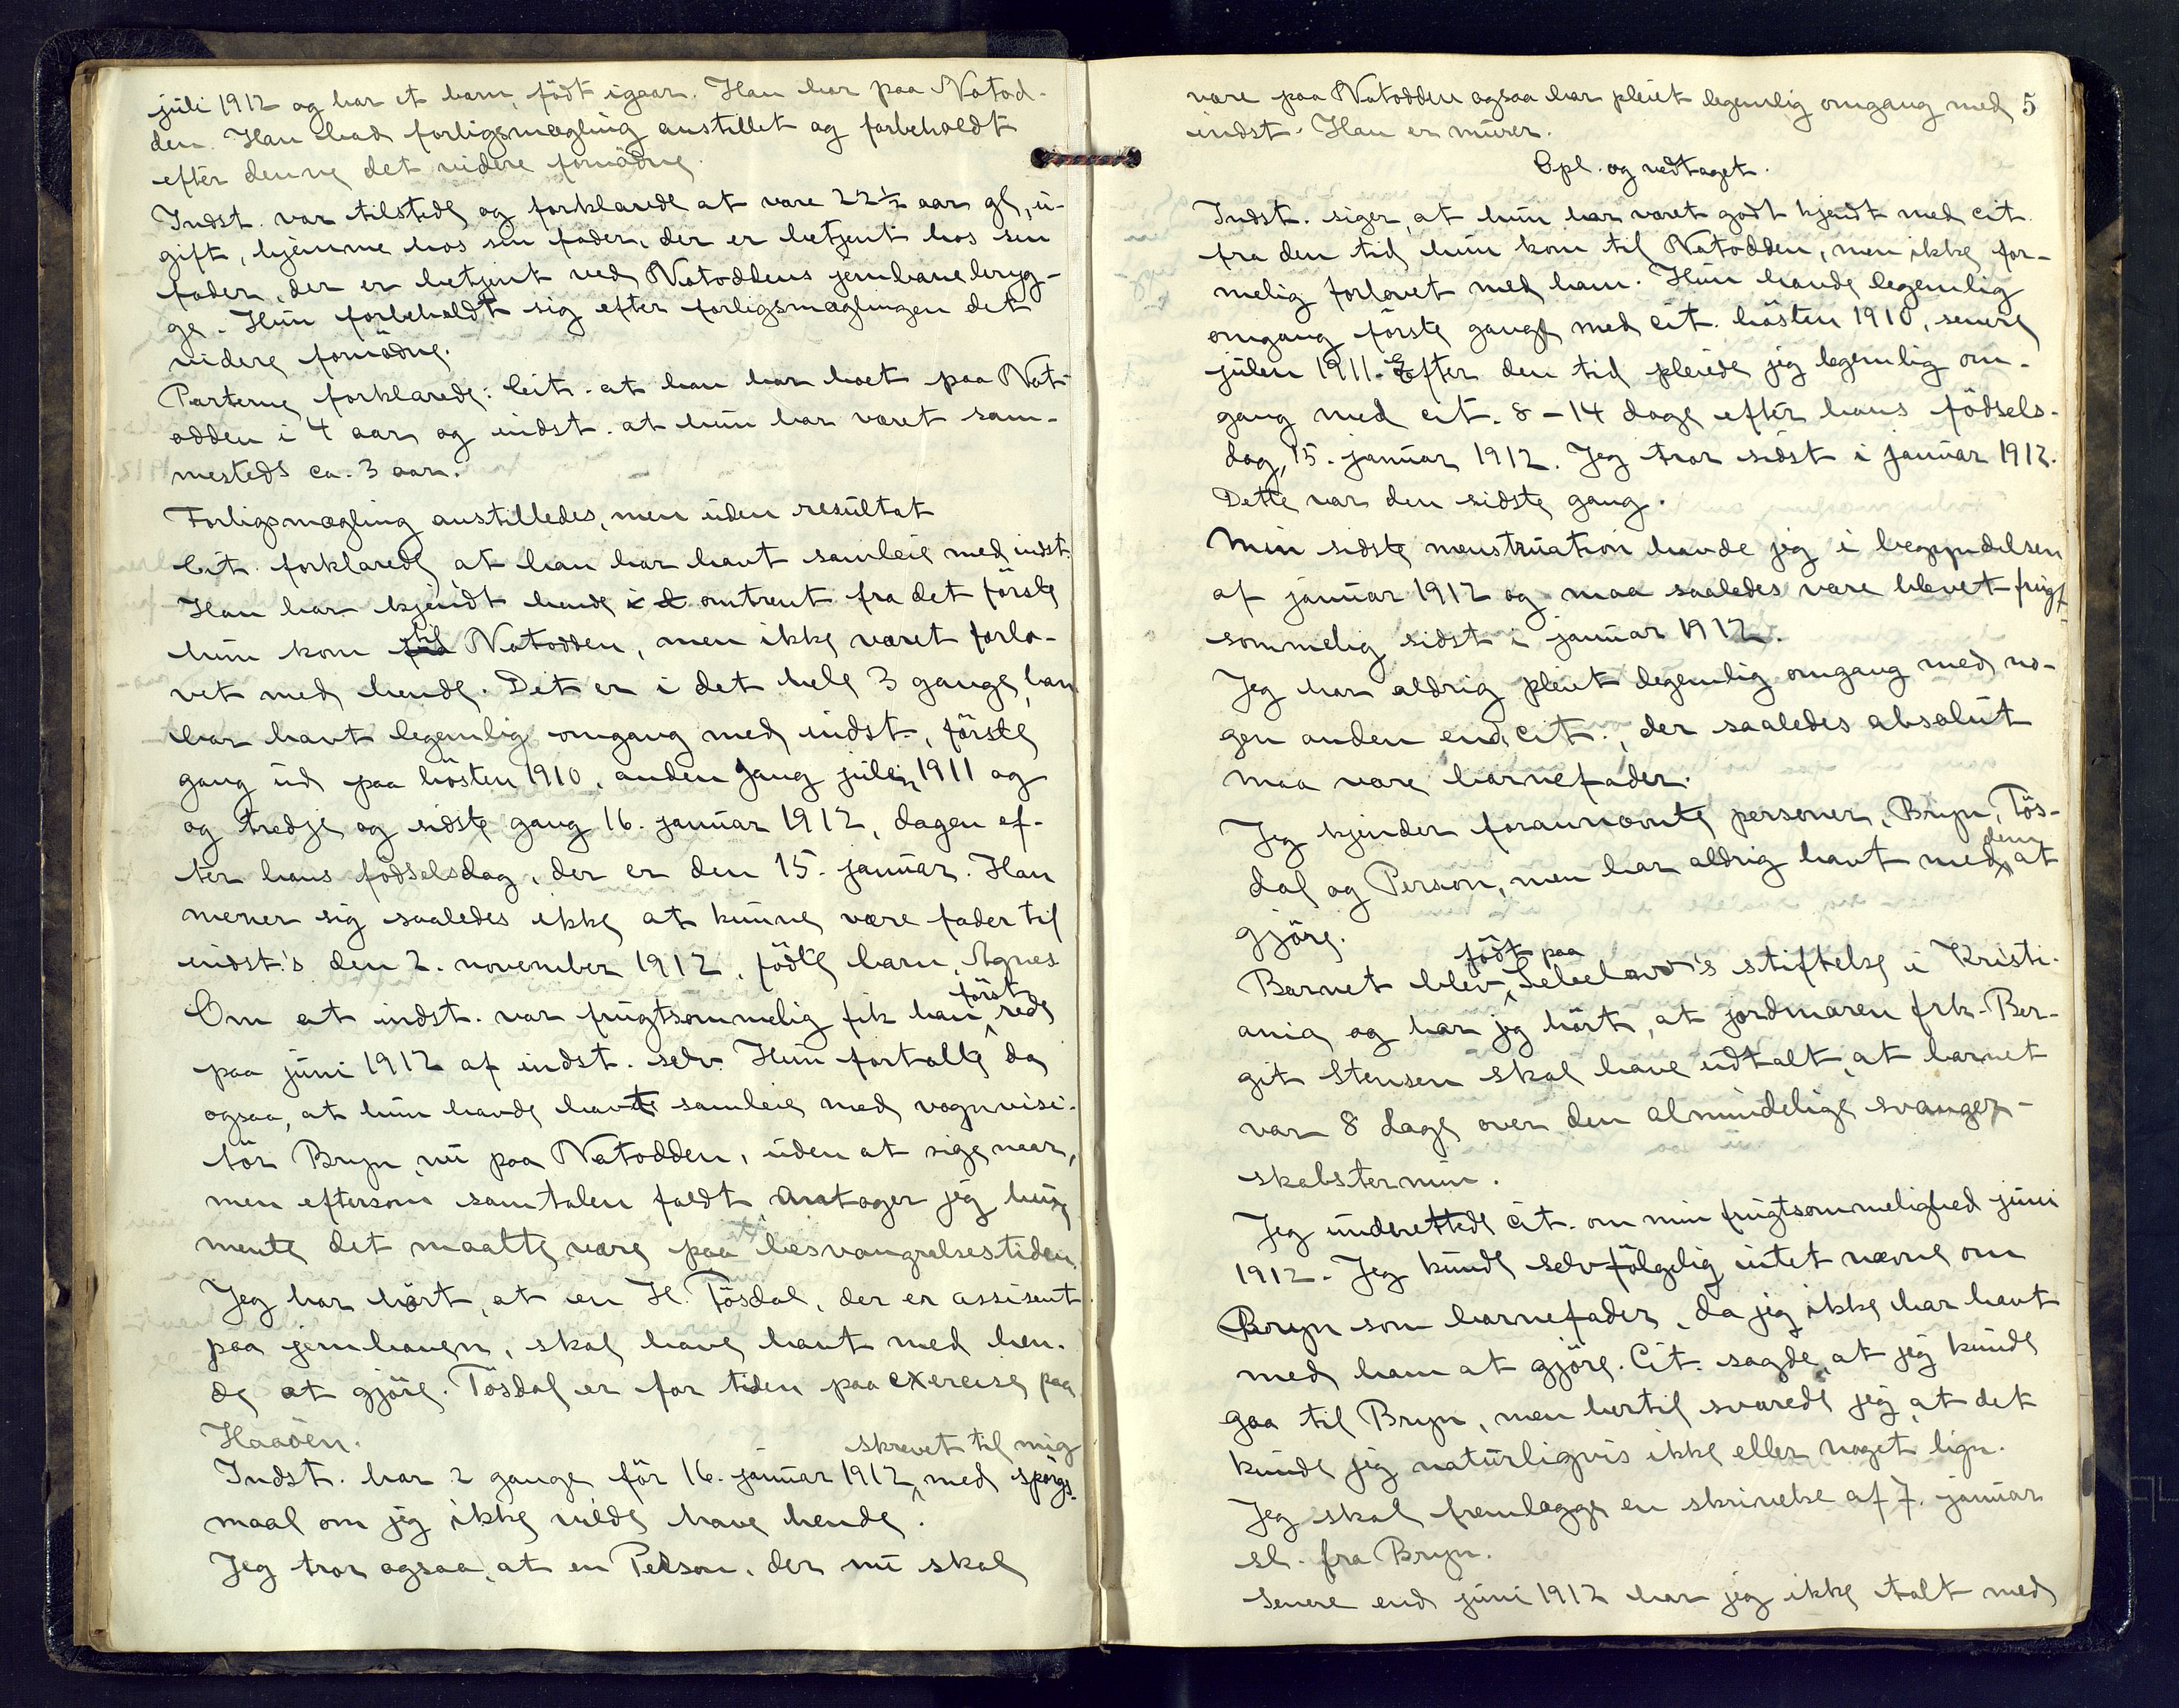 juli 1912 og har et barn, födt igaar. Han bor paa Notod-
den. Han bad forligsmægling anstillet og forbeholdt
efter denne det videre fornödne.
Indst. var tilstede og forklarede at være 22½ aar gl, u-
gift, hjemme hos sin fader, der er betjent hos sin
fader, der er betjent ved Notoddens jernbanebryg-
ge. Hun forbeholdt sig efter forligsmæglingen det
videre fornödne.
Parterne forklarede: Cit. at han har boet paa Not-
odden i 4 aar og indst. at hun har været sam-
mesteds ca. 3 aar.
Forligsmægling anstilledes, men uden resultat
Cit. forklarede at han har havt samleie med indst.
Han har kjendt hende omtrent fra det förste
hun kom til Notodden, men ikke været forlo-
vet med hende. Det er i det hele 3 gange, han
har havt legemlig omgang med indst, förste
gang ud paa hösten 1910, anden gang julen 1911 og
og tredje og sidste gang 16. januar 1912, dagen ef-
ter hans födselsdag, der er den 15. januar. Han
mener sig saaledes ikke at kunne være fader til
indst.'s den 2. november 1912, födte barn, Agnes
Om at indst. var frugtsommelig fik han först rede
paa juni 1912 af indst. selv. Hun fortalte da
ogsaa, at hun havde havt samleie med vognvisi-
tör Bryn, nu paa Notodden, uden at sige naar,
men eftersom samtalen faldt, antager jeg hun
mente det maatte være paa besvangrelsestiden
Jeg har hört, at en H. Tösdal, der er assisent
paa jernbanen, skal have havt med hen-
de at gjöre. Tösdal er for tiden paa exercise paa
Haaöen.
Indst. har 2 gange för 16. januar 1912, skrevet til mig med spörgs-
maal om jeg ikke vilde have hende.
Jeg tror ogsaa, at en Person, der nu skal
være paa Notodden ogsaa har pleiet legemlig omgang med 5
indst. Han er murer.
Opl. og vedtaget.
Indst. siger, at hun har været godt kjendt med cit.
fra den tid hun kom til Notodden, men ikke for-
melig forlovet med ham. Hun havde legemlig
omgang förste gang med cit. hösten 1910, senere
julen 1911. Efter den tid pleiede jeg legemlig om-
gang med cit. 8-14 dage efter hans födsels-
dag, 15. januar 1912. Jeg tror sidst i januar 1912.
Dette var den sidste gang.
Min sidste menstruation havde jeg i begyndelsen
af januar 1912 og maa saaledes være blevet frugt-
sommelig sidst i januar 1912.
Jeg har aldrig pleiet legemlig omgang med no-
gen anden end cit., der saaledes absolut
maa være barnefader.
Jeg kjender forannævnte personer, Bryn, Tös-
dal og Person, men har aldrig havt med dem at
gjöre.
Barnet blev födt paa stiftelse i Kristi-
ania og har jeg hört, at jordmoren frk. Ber-
git Stensen skal have udtalt, at barnet
var 8 dage over den almindelige svanger-
skabstermin.
Jeg underrettede cit. om min frugtsommelighed juni
1912. Jeg kunde selvfölgelig intet nævne om
Bryn som barnefader, da jeg ikke har havt
med ham at gjöre. Cit. sagde, at jeg kunde
gaa til Bryn, men hertil svarede jeg, at det
kunde jeg naturligvis ikke eller noget lign.
Jeg skal fremlægge en skrivelse af 7. januar
sl. fra Bryn.
Senere end juni 1912 har jeg ikke talt med